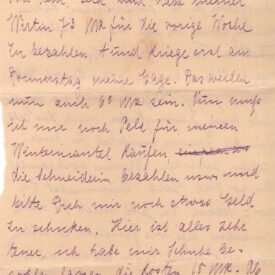 habe meiner
Wirtin 73 Mk für die vorige Woche
zu bezahlen und kriege erst am
Donnerstag meine Gage. Das werden
nun auch 60 Mk sein. Nun muss
ich mir noch Pelz für meinen
Wintermantel kaufen,
die Schneiderin bezahlen usw und
bitte Euch mir noch etwas Geld
zu schicken. Hier ist alles sehr
teuer, ich habe mir Schuhe be-
die kosten 15 Mk.